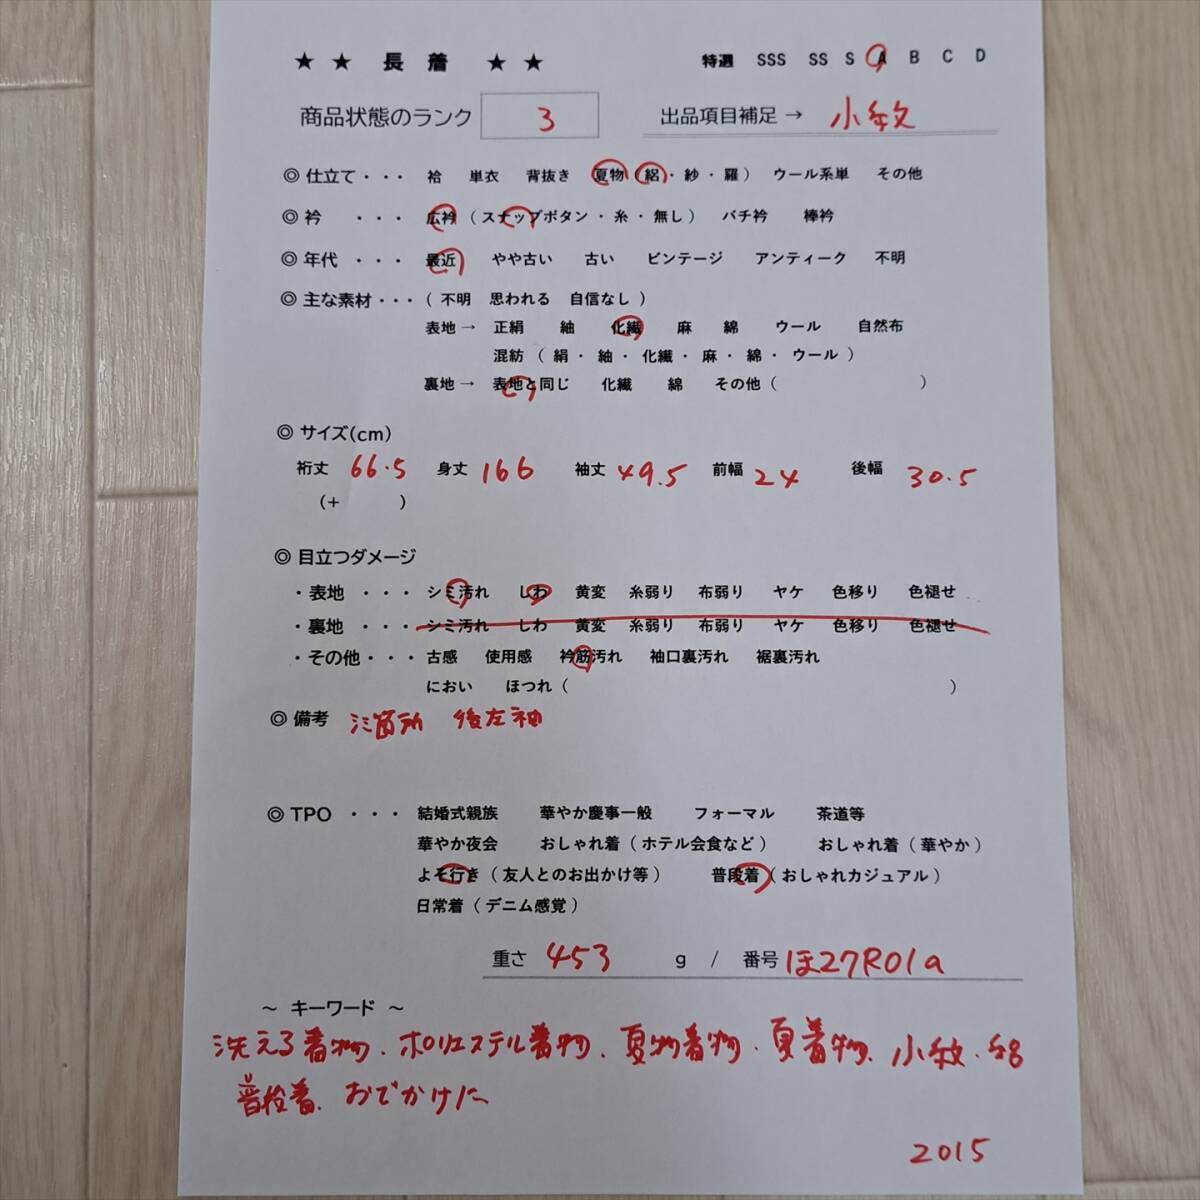 ★ ★ 長 着 ★ ★ 特選 SSS SS S A B C D
商品状態のランク 3 出品項目補足 → 小紋
◎ 仕立て・・・ 袷 単衣 背抜き 夏物 ( 絽 ・ 紗 ・ 羅 ) ウール系単 その他
◎ 衿 ・・・ 広衿 ( スナップボタン ・ 糸 ・ 無し ) バチ衿 棒衿
◎ 年代 ・・・ 最近 やや古い 古い ビンテージ アンティーク 不明
◎ 主な素材・・・ ( 不明 思われる 自信なし )
表地→ 正絹 紬 化繊 麻 綿 ウール 自然布
混紡 ( 絹 ・ 紬 ・ 化繊 ・ 麻 ・ 綿 ・ ウール )
裏地→ 表地と同じ 化繊 綿 その他 ( )
◎ サイズ(cm)
裄丈 66.5 身丈 166 袖丈 49.5 前幅 24 後幅 30.5
(+ )
◎ 目立つダメージ
・表地 ・・・ シミ汚れ しわ 黄変 糸弱り 布弱り ヤケ 色移り 色褪せ
・裏地 ・・・ シミ汚れ しわ 黄変 糸弱り 布弱り ヤケ 色移り 色褪せ
・その他・・・ 古感 使用感 衿筋汚れ 袖口裏汚れ 裾裏汚れ
におい ほつれ ( )
◎ 備考 箇所 後左袖
◎ TPO ・・・ 結婚式親族 華やか慶事一般 フォーマル 茶道等
華やか夜会 おしゃれ着 ( ホテル会食など ) おしゃれ着 ( 華やか )
よそ行き ( 友人とのお出かけ等 ) 普段着 ( おしゃれカジュアル )
日常着 ( デニム感覚 )
重さ 453 g / 番号 ほ27R01a
～ キーワード ～
洗える着物、ポリエステル着物、夏物着物、夏着物、小紋、絽
普段着、おでかけに
2015